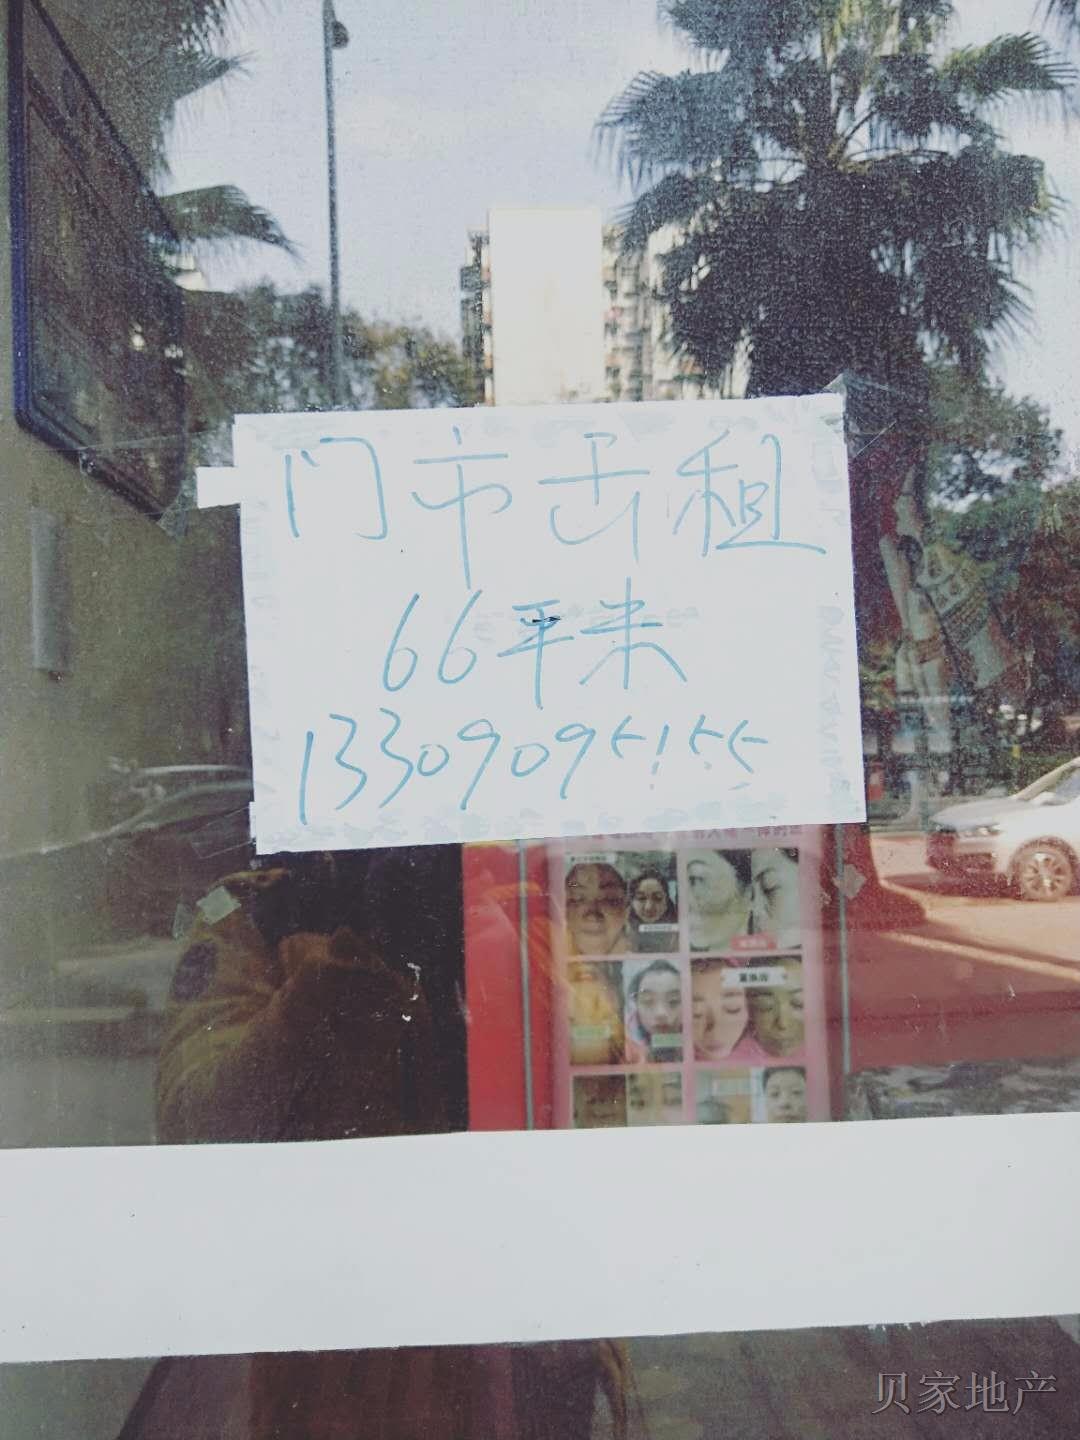 门市击租
66平米
13309095155
贝家地产